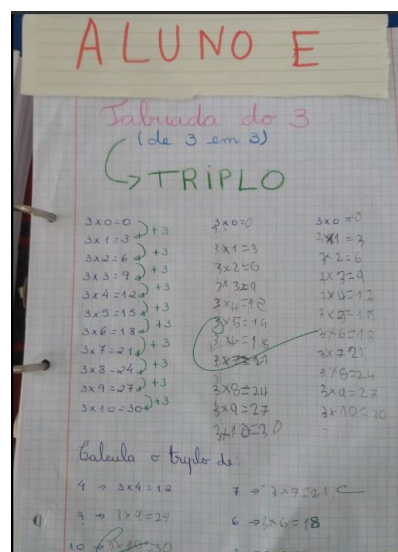 ALUNO E
Tabuada do 3
(de 3 em 3)
TRIPLO
3x0=0
3x1=3
3x2=6
3x3=9
3x4=12
3x5=15
3x6=18
3x7=21
3x8=24
3x9=27
3x10=30
+3
+3
+3
+3
+3
+3
+3
+3
+3
+3
3x0=0
3x1=3
3x2=6
3x3=9
3x4=12
3x5=15
3x6=18
3x7=21
3x8=24
3x9=27
3x10=30
3x0=0
3x1=3
3x2=6
3x3=9
3x4=12
3x5=15
3x6=18
3x7 21
3x8=24
3x9=27
3x10=30
Calcula o triplo de:
4 → 3x4=12 7 → 3x7=21 C
6 → 3x6=18
10